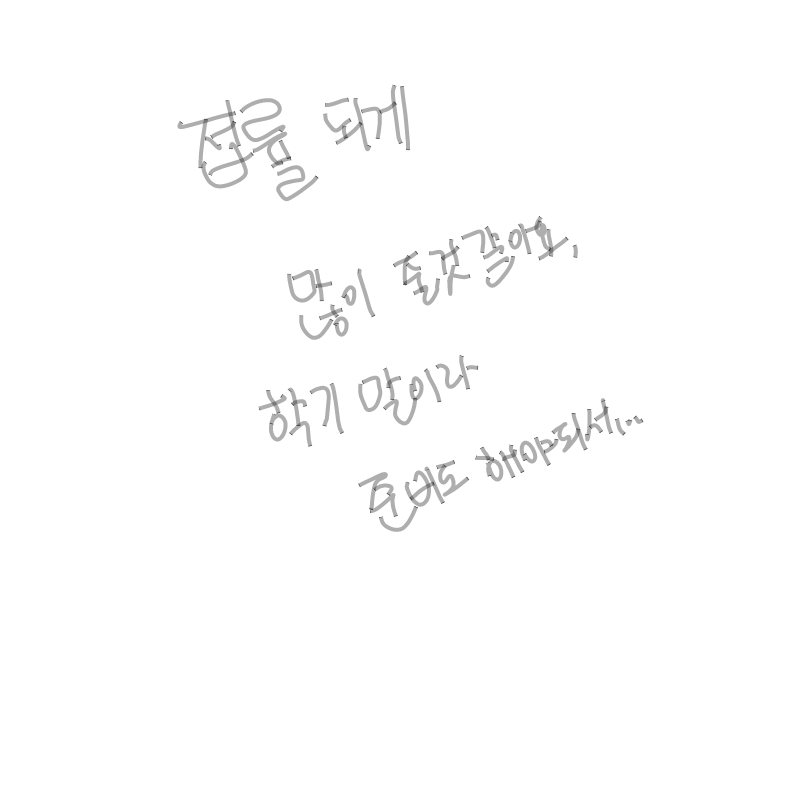 점를 되게
많이 준것 같아요,
학기 말이라
준비도 해야되서...